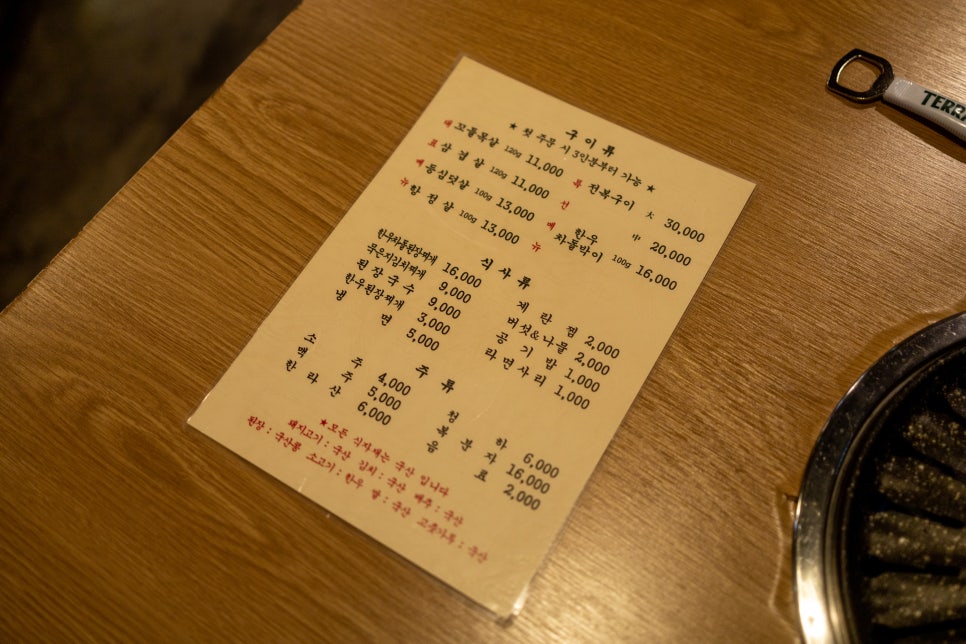 구이류
★ 첫 주문 시 3인분부터 가능 ★
대 꼬들목살 120g 11,000
표 삼겹살 120g 11,000
메 등심덧살 100g 13,000
뉴 항정살 100g 13,000
특 전복구이 大 30,000
선 中 20,000
메 한우
뉴 차돌박이 100g 16,000
식사류
한우차돌된장찌개 16,000
묵은지김치찌개 9,000
된장국수 9,000
한우된장찌개 3,000
냉면 5,000
계란찜 2,000
버섯&나물 2,000
공기밥 1,000
라면사리 1,000
주류
소주 4,000
맥주 5,000
한라산 6,000
청하 6,000
복분자 16,000
음료 2,000
★모든 식자재는 국산 입니다
돼지고기 : 국산 김치 : 국산 배추 : 국산
된장 : 국산콩 소고기 : 한우 쌀 : 국산 고춧가루 : 국산
TERRA